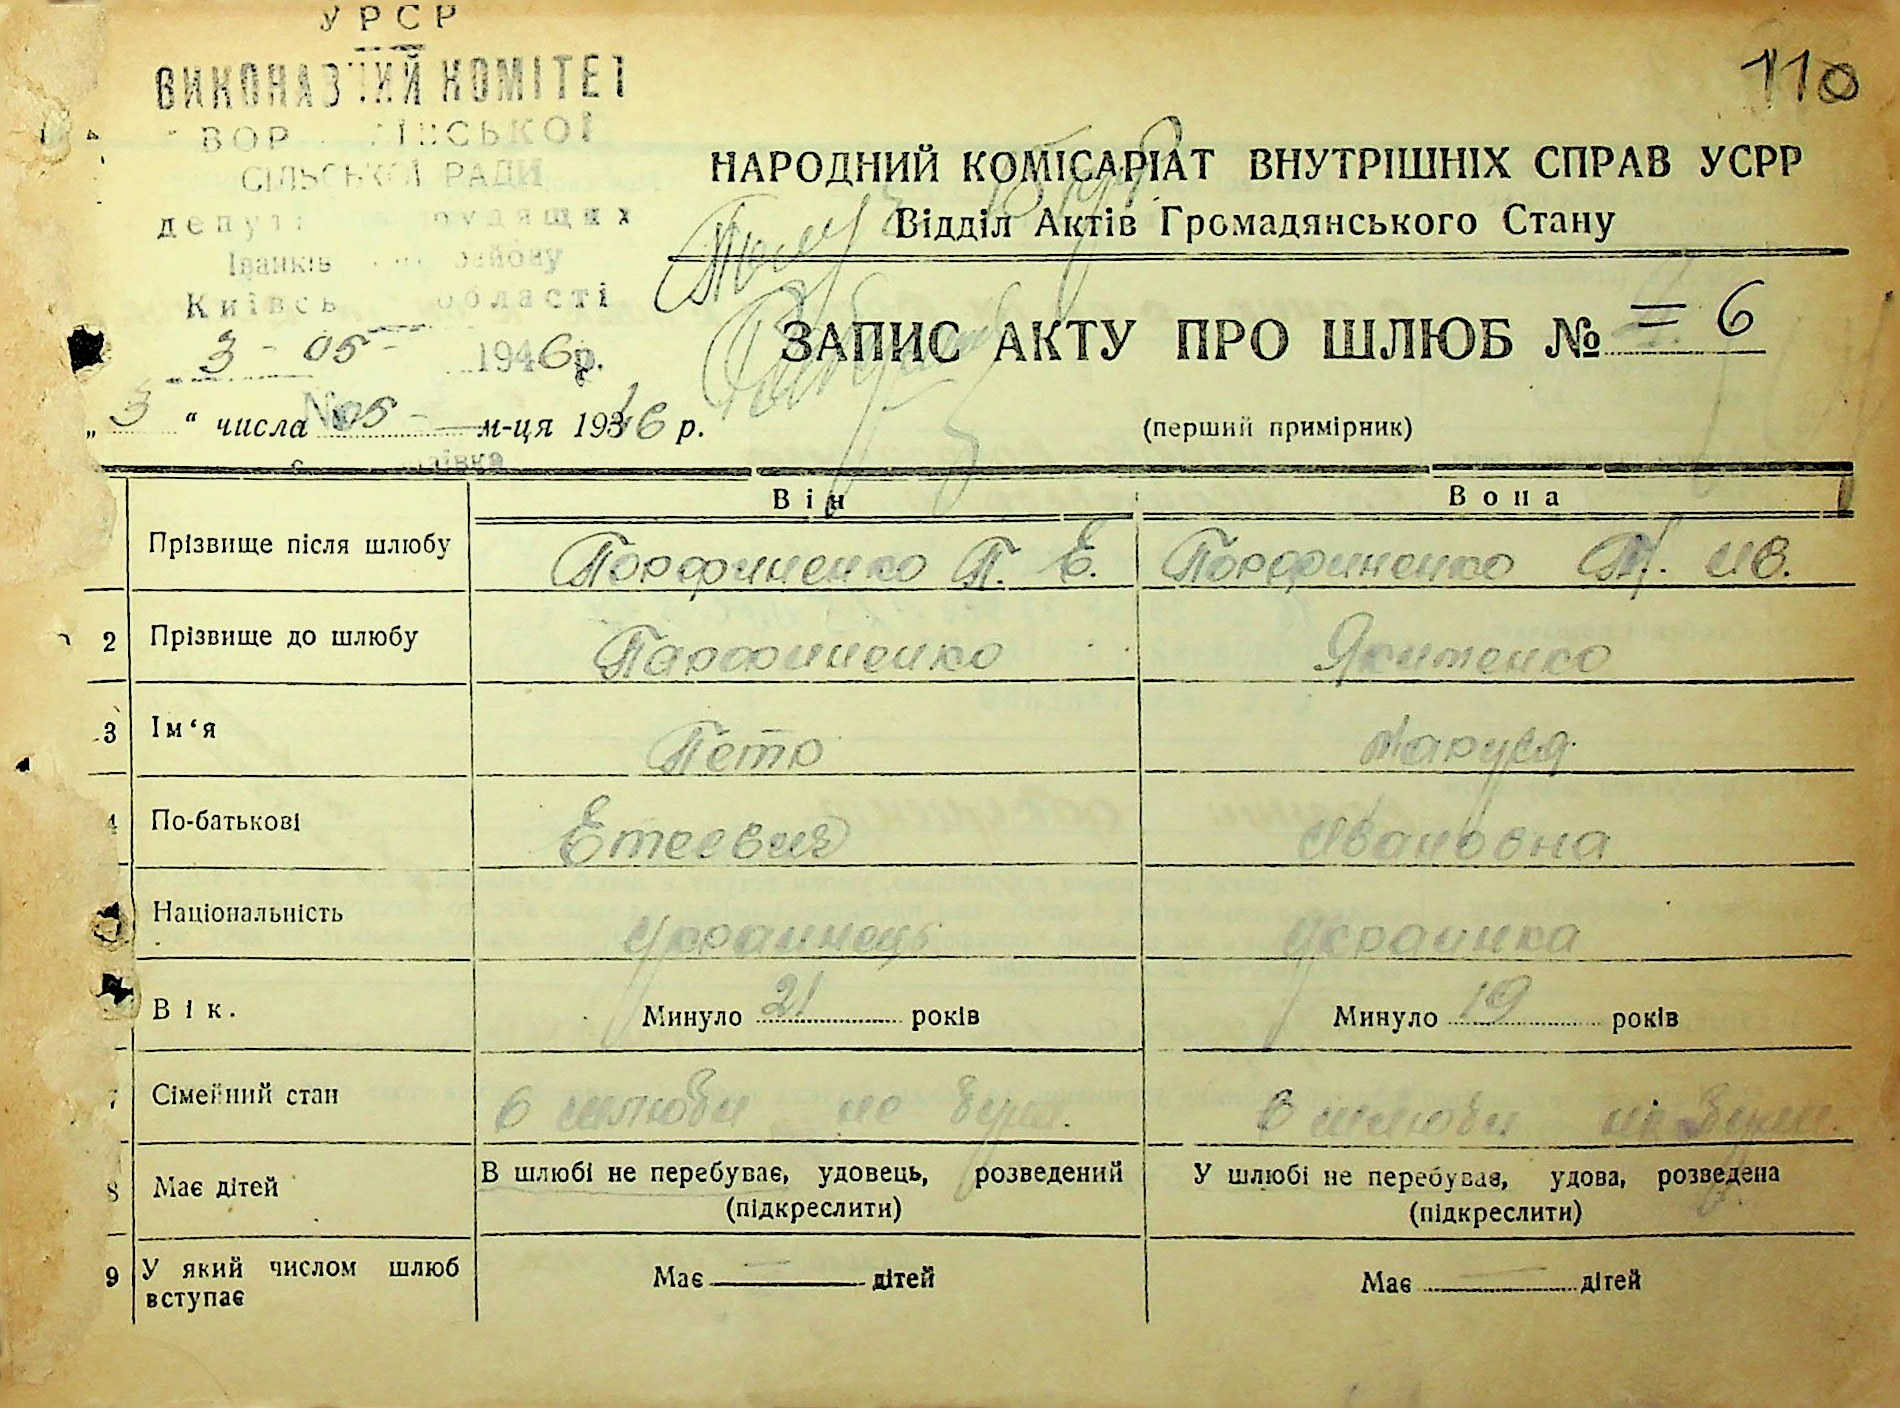 УРСР
ВИКОНАВЧИЙ КОМІТЕТ
СІЛЬСЬКОЇ РАДИ
депутатів трудящих
Іванківського району
Київської області
3 - 05 - 1946 р.
110
НАРОДНИЙ КОМІСАРІАТ ВНУТРІШНІХ СПРАВ УСРР
Відділ Актів Громадянського Стану
ЗАПИС АКТУ ПРО ШЛЮБ № = 6
„ 3 “ числа 05 - м-ця 1946 р.
(перший примірник)
Він Вона
Прізвище після шлюбу Порфиненко П. Е. Порфиненко М. Ив.
2 Прізвище до шлюбу Парфиненко Якименко
3 Ім‘я Петро Маруся
4 По-батькові Ивановна
Національність Украинець Украинка
Вік. Минуло 21 років Минуло 19 років
7 Сімейний стан в шлюби не був. в шлюби не
8 Має дітей В шлюбі не перебуває, удовець, розведений У шлюбі не перебуває, удова, розведена
(підкреслити) (підкреслити)
9 У який числом шлюб Має — дітей Має — дітей
вступає